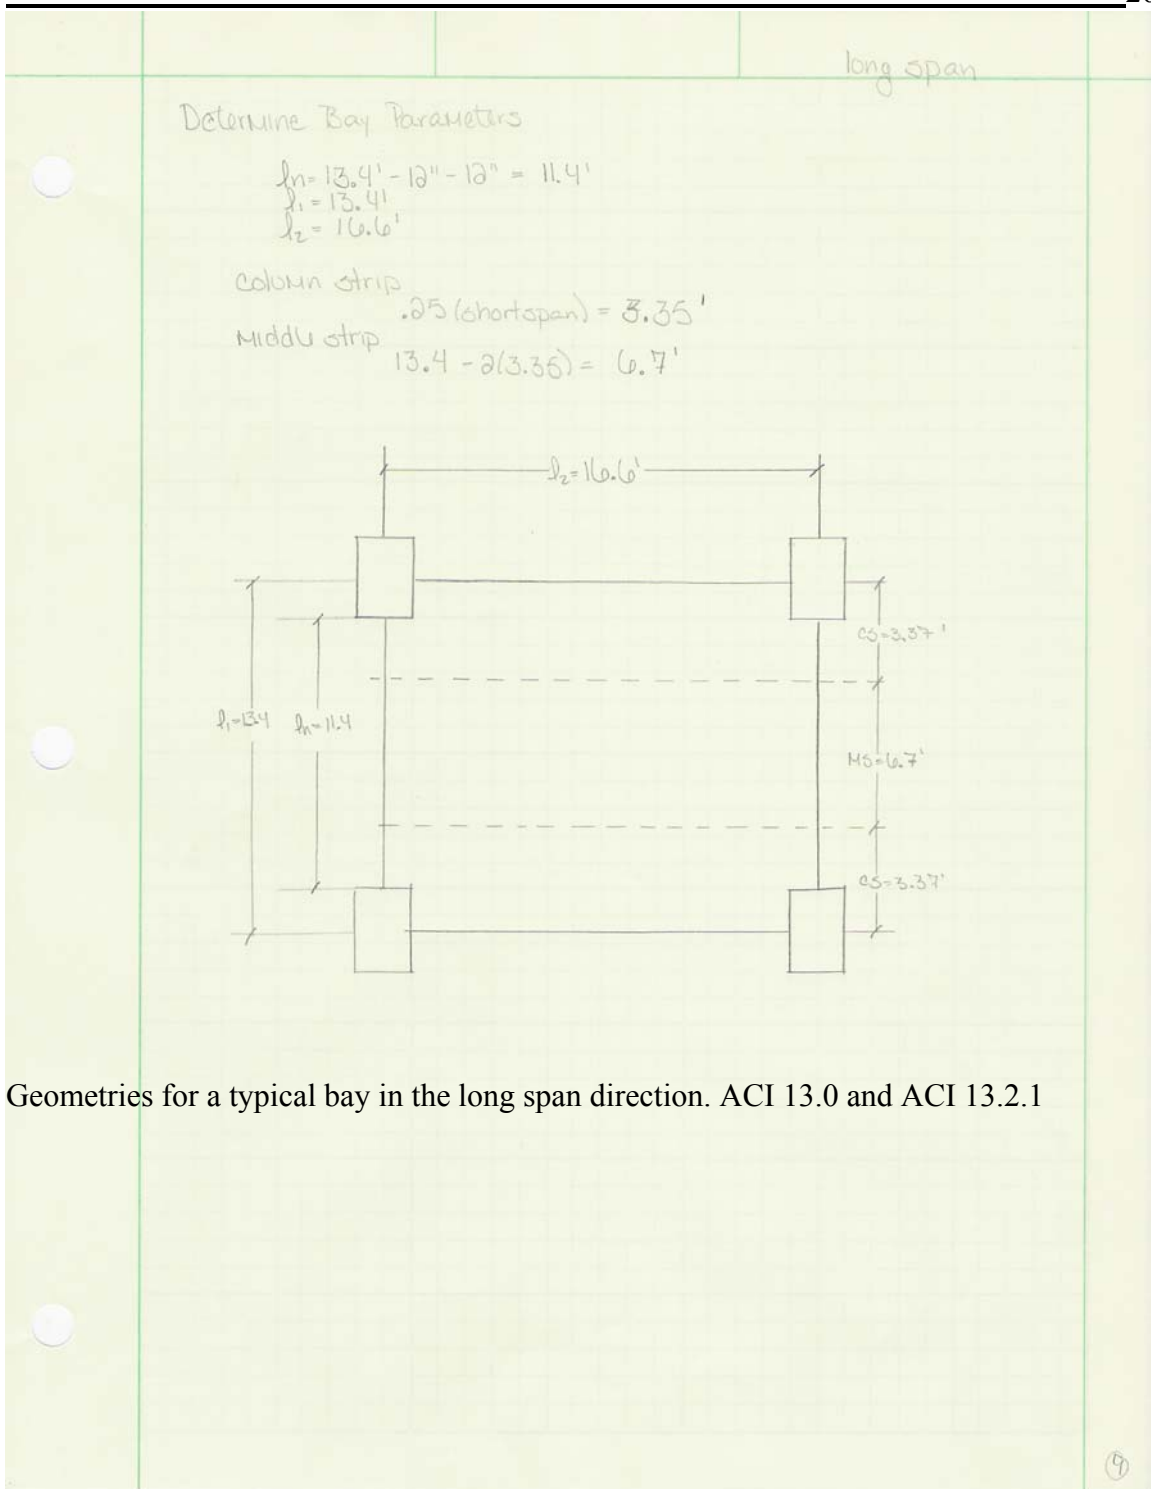 long span
Determine Bay Parameters
ln = 13.4' - 12" - 12" = 11.4'
l1 = 13.4'
l2 = 16.6'
Column strip
.25 (short span) = 3.35'
Middle strip
13.4 - 2(3.35) = 6.7'
l2 = 16.6'
CS = 3.37'
l1 = 13.4
ln = 11.4
MS = 6.7'
CS = 3.37'
Geometries for a typical bay in the long span direction. ACI 13.0 and ACI 13.2.1
9